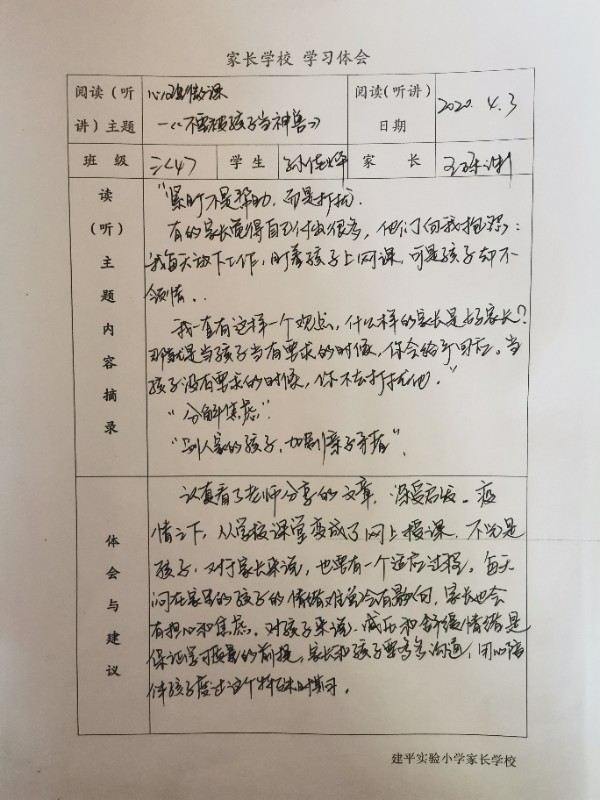 家长学校 学习体会
阅读（听讲）主题
心理微课
—《不要把孩子当神兽》
阅读（听讲）日期
2020.4.3
班 级
三（4）
学 生
孙佳
家 长
读（听）主题内容摘录
"紧盯不是帮助，而是打扰。
有的家长觉得自己付出很多，他们向我抱怨：
我每天放下工作，盯着孩子上网课，可是孩子却不
领情..
我一直有这样一个观点，什么样的家长是好家长？
那就是当孩子当有要求的时候，你会给予回应。当
孩子没有要求的时候，你不去打扰他。"
"分解焦虑"
"别人家的孩子，加剧亲子矛盾"。
体会与建议
认真看了老师分享的文章，深受启发。疫
情之下，从学校课堂变成了网上授课，不光是
孩子，对于家长来说，也要有一个适应过程。每天
闷在家里的孩子的情绪难免会有影响，家长也会
有担心和焦虑。对孩子来说，减压和舒缓情绪是
保证学习质量的前提，家长和孩子要多多沟通，用心陪
伴孩子度过这个特殊时期。
建平实验小学家长学校